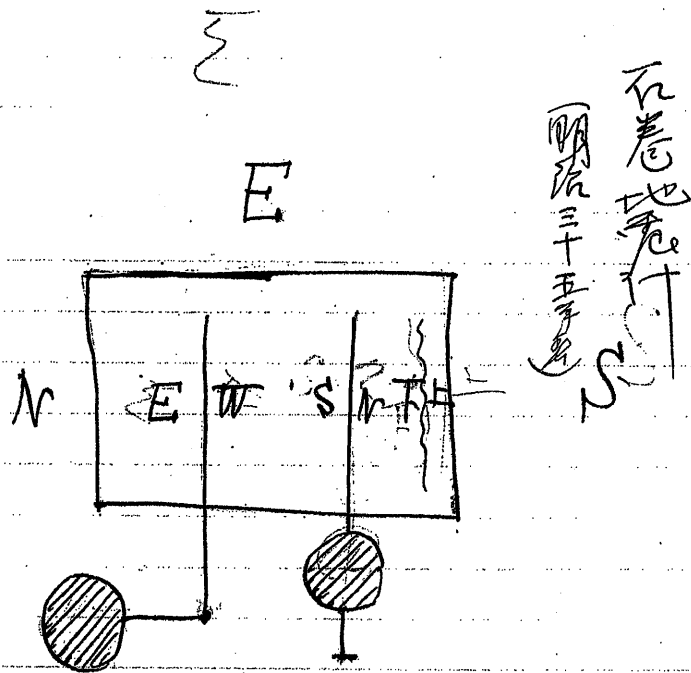 石巻地震計
(明治三十五年
E
N
S
E W S N 下 上